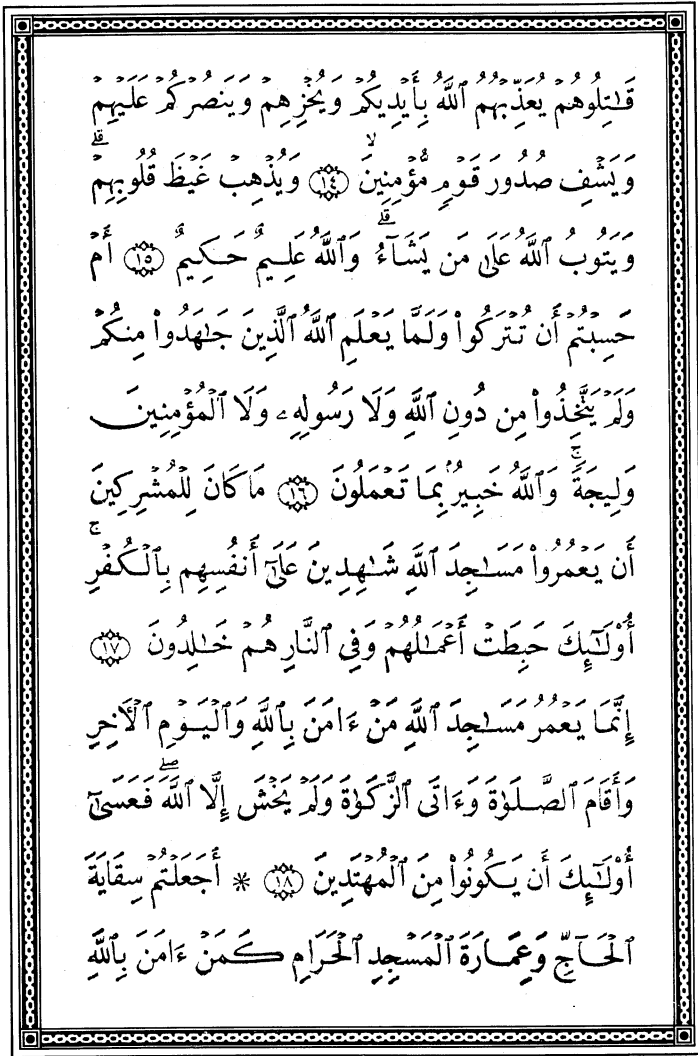 قَـٰتِلُوهُمْ يُعَذِّبْهُمُ ٱللَّهُ بِأَيْدِيكُمْ وَيُخْزِهِمْ وَيَنصُرْكُمْ عَلَيْهِمْ
وَيَشْفِ صُدُورَ قَوْمٍ مُّؤْمِنِينَ ۙ ﴿١٤﴾ وَيُذْهِبْ غَيْظَ قُلُوبِهِمْ ۗ
وَيَتُوبُ ٱللَّهُ عَلَىٰ مَن يَشَآءُ ۗ وَٱللَّهُ عَلِيمٌ حَكِيمٌ ﴿١٥﴾ أَمْ
حَسِبْتُمْ أَن تُتْرَكُوا۟ وَلَمَّا يَعْلَمِ ٱللَّهُ ٱلَّذِينَ جَـٰهَدُوا۟ مِنكُمْ
وَلَمْ يَتَّخِذُوا۟ مِن دُونِ ٱللَّهِ وَلَا رَسُولِهِۦ وَلَا ٱلْمُؤْمِنِينَ
وَلِيجَةً ۚ وَٱللَّهُ خَبِيرٌۢ بِمَا تَعْمَلُونَ ﴿١٦﴾ مَا كَانَ لِلْمُشْرِكِينَ
أَن يَعْمُرُوا۟ مَسَـٰجِدَ ٱللَّهِ شَـٰهِدِينَ عَلَىٰٓ أَنفُسِهِم بِٱلْكُفْرِ ۚ
أُو۟لَـٰٓئِكَ حَبِطَتْ أَعْمَـٰلُهُمْ وَفِى ٱلنَّارِ هُمْ خَـٰلِدُونَ ﴿١٧﴾
إِنَّمَا يَعْمُرُ مَسَـٰجِدَ ٱللَّهِ مَنْ ءَامَنَ بِٱللَّهِ وَٱلْيَوْمِ ٱلْـَٔاخِرِ
وَأَقَامَ ٱلصَّلَوٰةَ وَءَاتَى ٱلزَّكَوٰةَ وَلَمْ يَخْشَ إِلَّا ٱللَّهَ ۖ فَعَسَىٰٓ
أُو۟لَـٰٓئِكَ أَن يَكُونُوا۟ مِنَ ٱلْمُهْتَدِينَ ﴿١٨﴾ * أَجَعَلْتُمْ سِقَايَةَ
ٱلْحَآجِّ وَعِمَارَةَ ٱلْمَسْجِدِ ٱلْحَرَامِ كَمَنْ ءَامَنَ بِٱللَّهِ